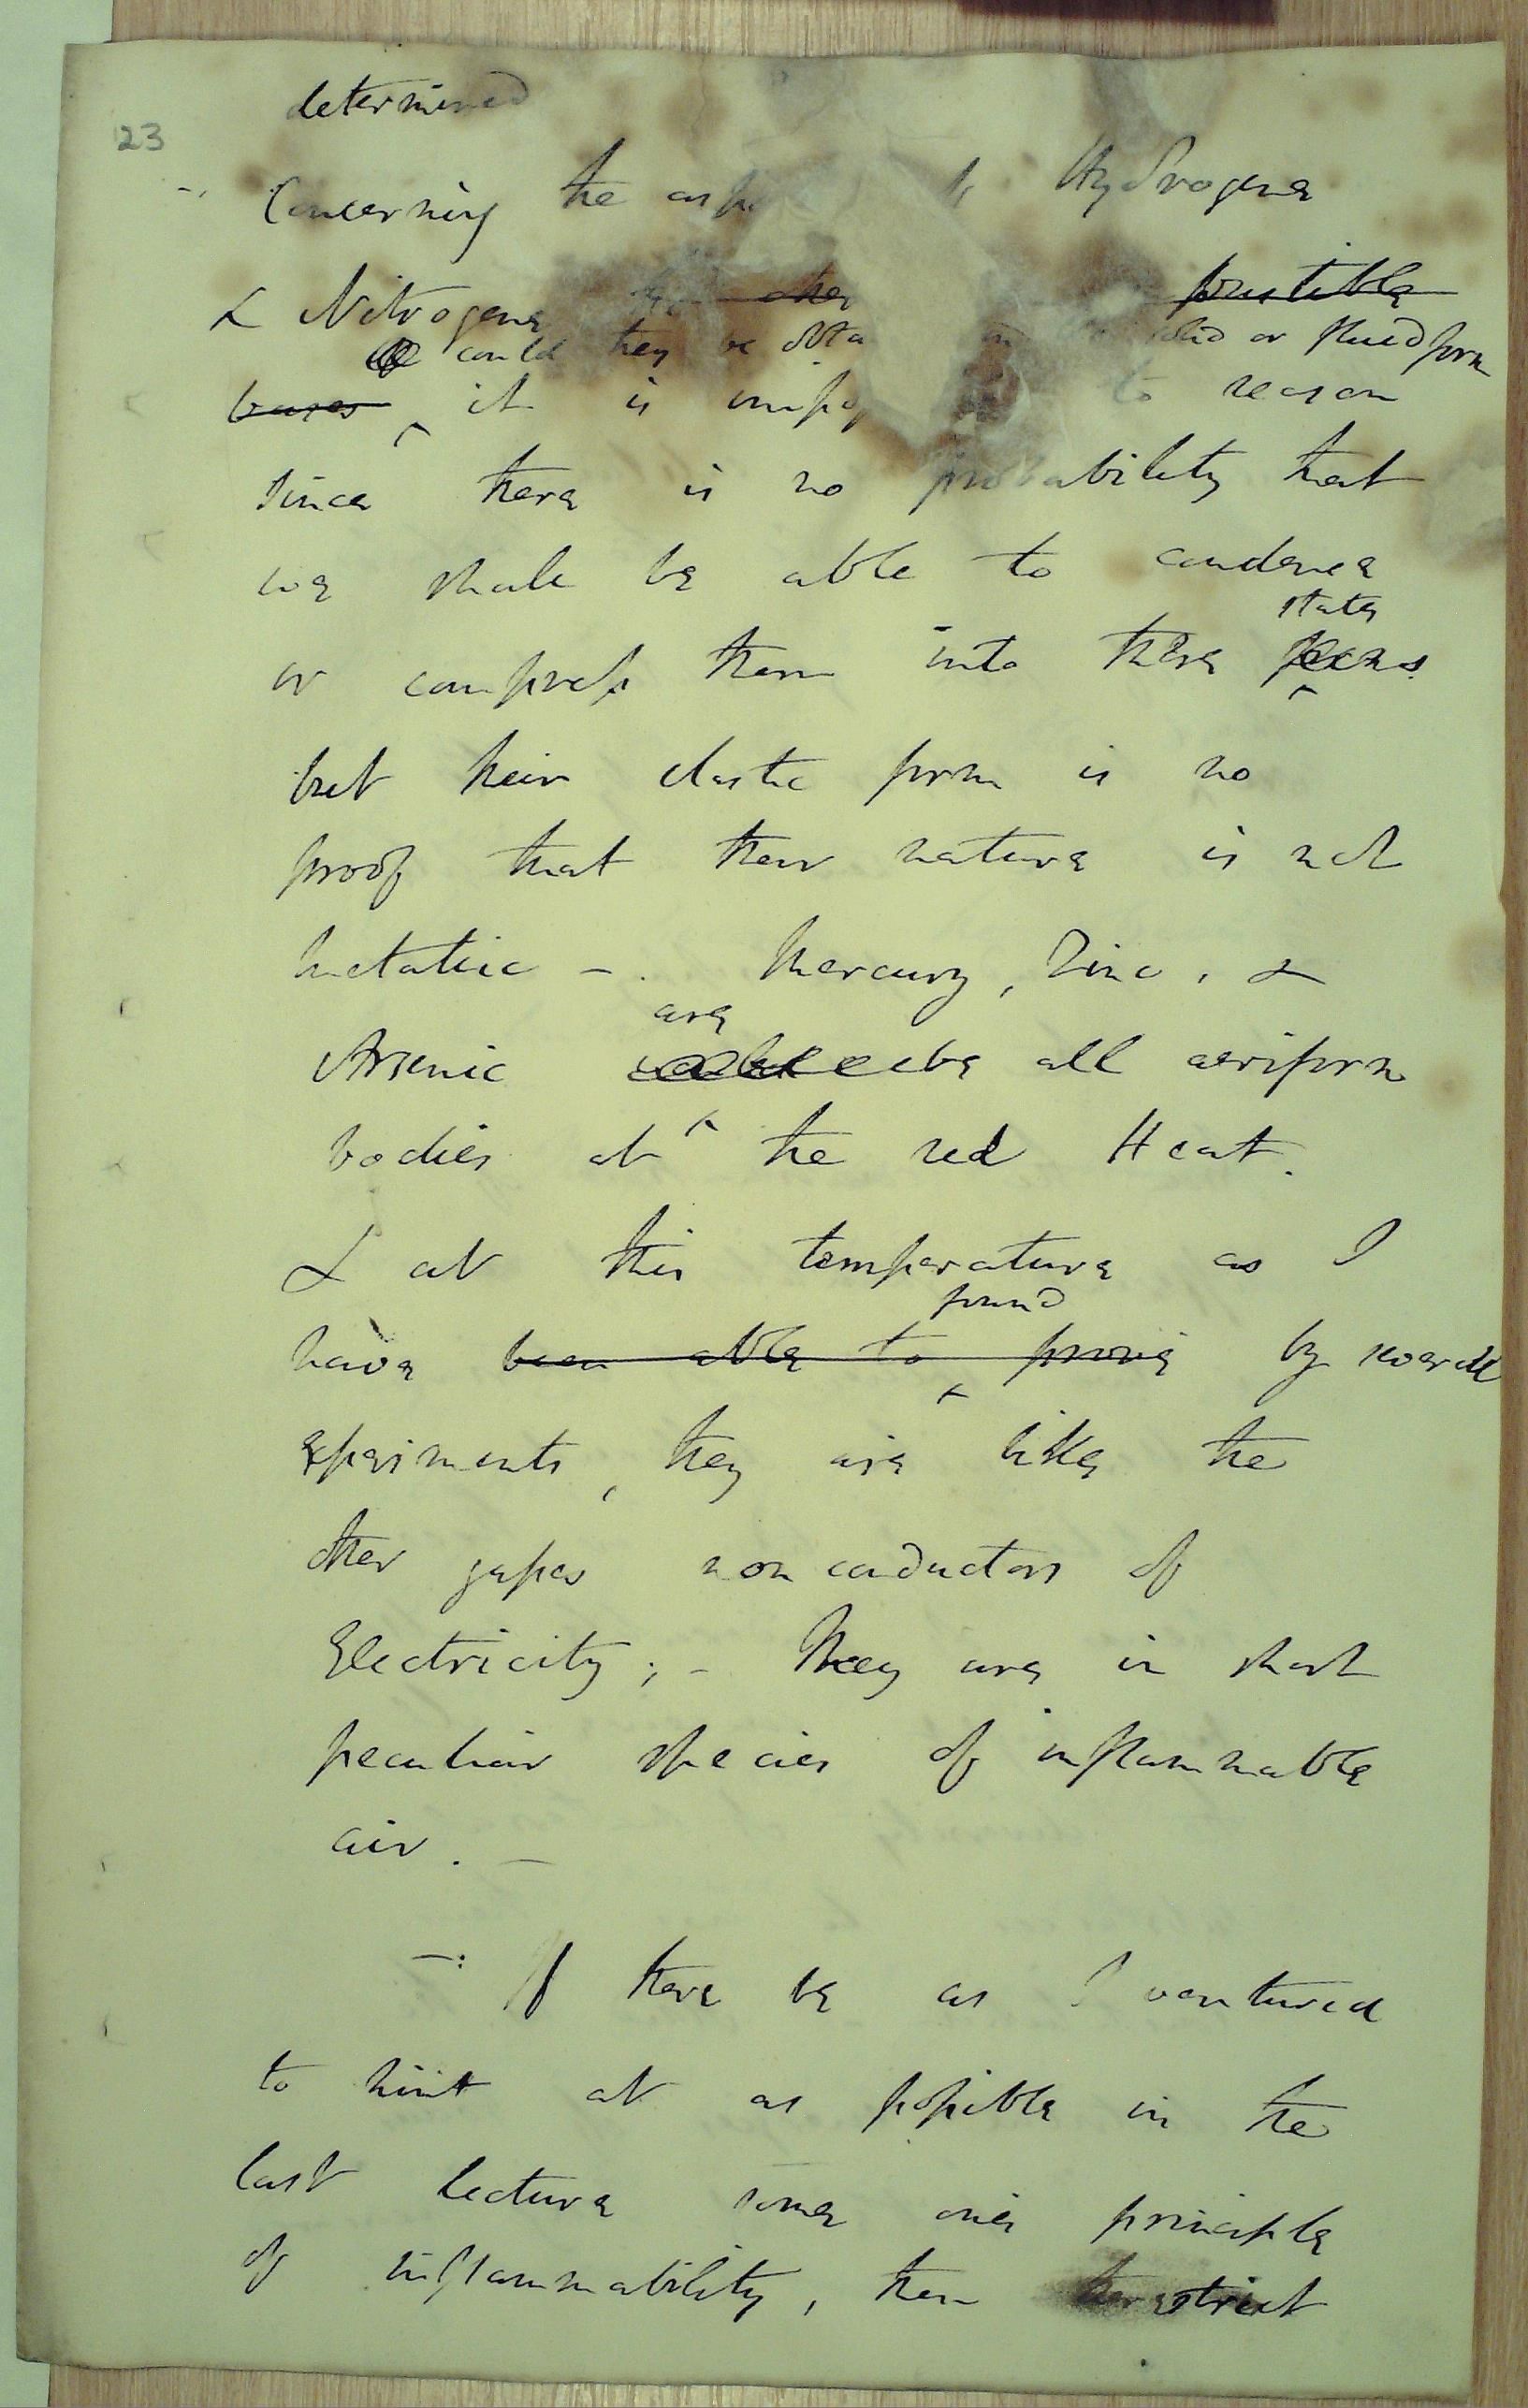 determined
23
Concerning the asp Hydrogene
& Nitrogene other fusible
could they be obta solid or fluid form
bases it is imposs to reason
since there is no probability that
we shall be able to condense
states
or compress them into these forms.
but their elastic form is no
proof that their nature is not
metallic – . Mercury, Zinc, &
are
Arsenic be all aeriform
bodies at the red Heat.
& at this temperature as I
found
have been able to prove by several
experiments, they are like the
other gasses non conductors of
Electricity; – They are in short
peculiar species of inflammable
air. –
–: If there be as I ventured
to hint at as possible in the
last lecture some one principle
of inflammability, then strict